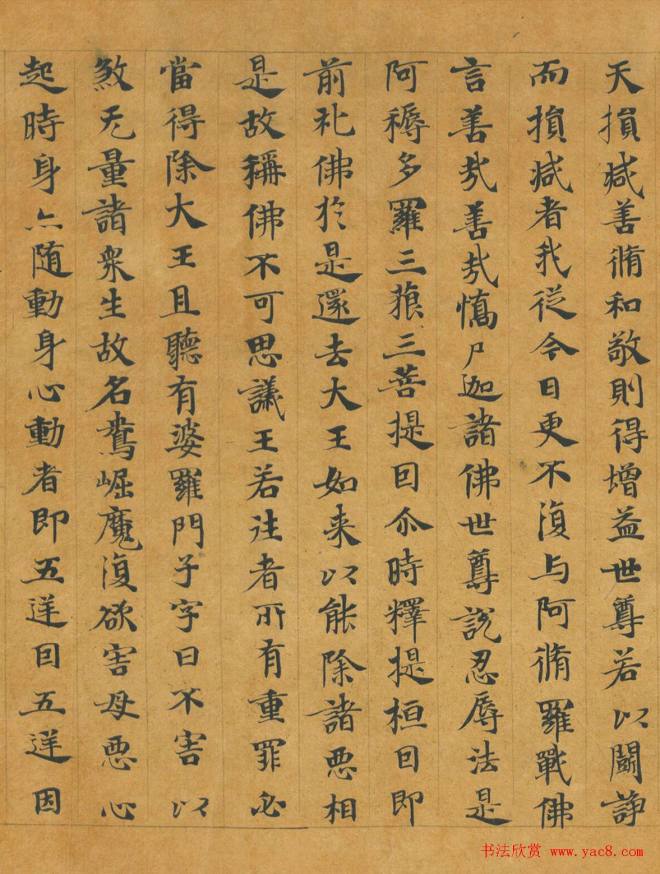 天損減善脩和敬則得增益世尊若以鬪諍
而損減者我從今日更不復与阿脩羅戰佛
言善哉善哉憍尸迦諸佛世尊說忍辱法是
阿耨多羅三藐三菩提因尒時釋提桓因即
前礼佛於是還去大王如来以能除諸悪相
是故稱佛不可思議王若往者所有重罪必
當得除大王且聽有婆羅門子字曰不害以
煞无量諸衆生故名鴦崛魔復欲害母悪心
起時身亦随動身心動者即五逆因五逆因
书法欣赏 www.yac8.com